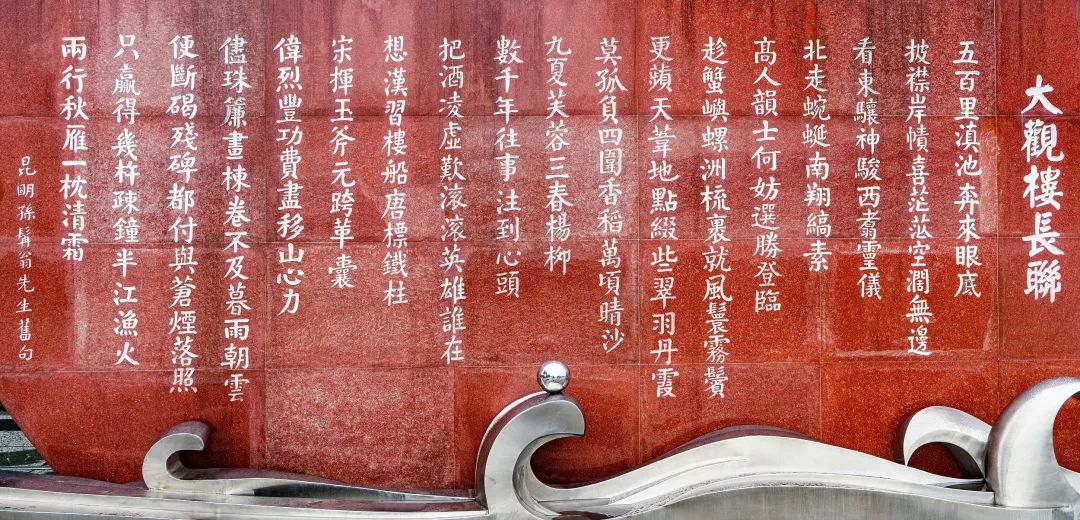 大觀樓長聯
五百里滇池奔來眼底
披襟岸幘喜茫茫空濶無邊
看東驤神駿西翥靈儀
北走蜿蜒南翔縞素
高人韻士何妨選勝登臨
趁蟹嶼螺洲梳裹就風鬟霧鬢
更蘋天葦地點綴些翠羽丹霞
莫孤負四圍香稻萬頃晴沙
九夏芙蓉三春楊柳
數千年往事注到心頭
把酒凌虛歎滾滾英雄誰在
想漢習樓船唐標鐵柱
宋揮玉斧元跨革囊
偉烈豐功費盡移山心力
儘珠簾畫棟卷不及暮雨朝雲
便斷碣殘碑都付與蒼煙落照
只贏得幾杵疎鐘半江漁火
兩行秋雁一枕清霜
昆明孫髯翁先生舊句